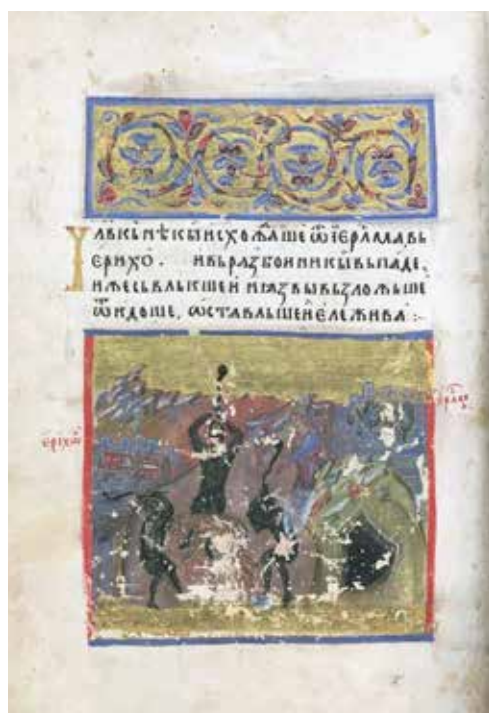 Ч҃ЛВКЬ НѢКЫИ СХОЖДАШЕ Ѿ ІЕРЛ҃МА ВЬ
ЕРИХО . И ВЬ РАЗБОИНИКЫ ВЬПАДЕ .
ИЖЕ СЬВЛЬКШЕ И И ІАЗВЫ ВЬЗЛОЖЬШЕ
ѾИДОШЕ , ѠСТАВЛЬШЕ И ЕЛЕ ЖИВА :·
ЕРІХѠ